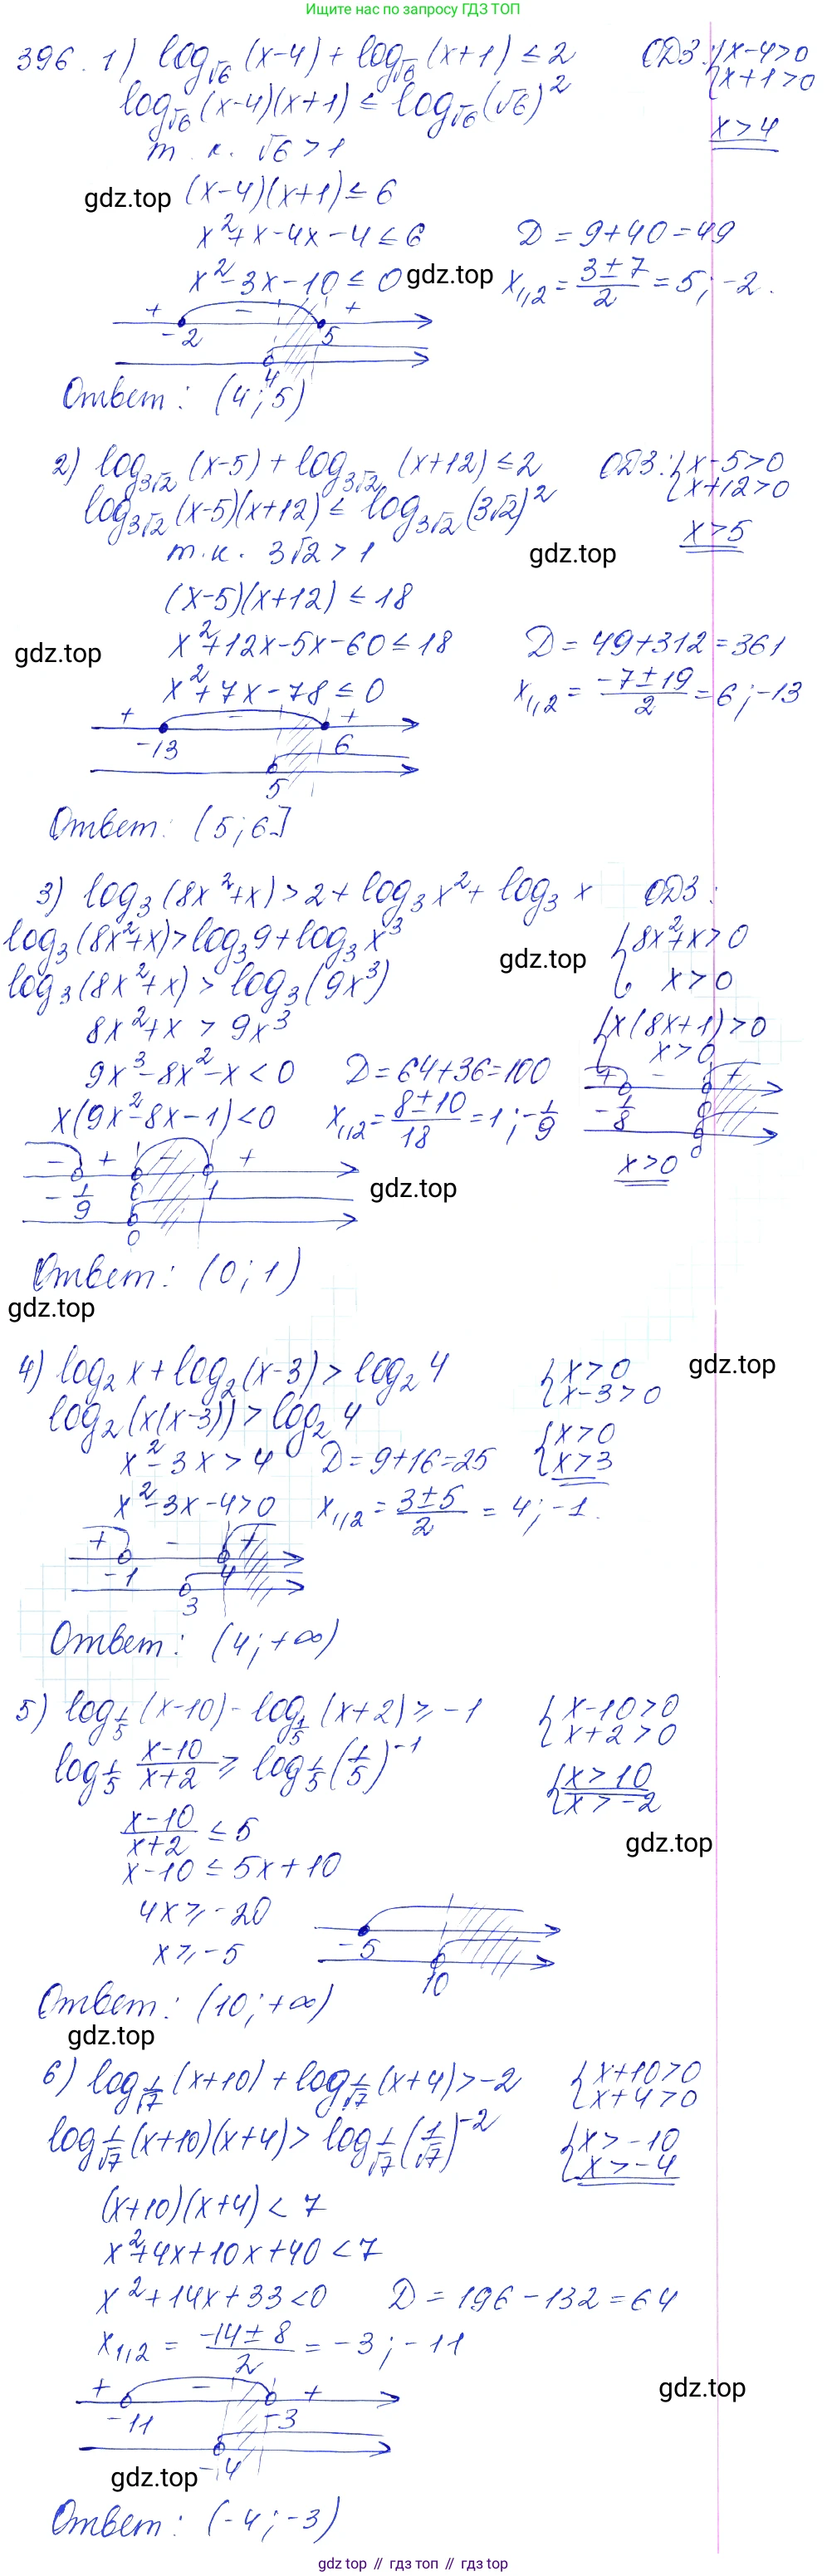 Ищите нас по запросу ГДЗ ТОП
396. 1) log_√6 (x-4) + log_√6 (x+1) ≤ 2 ОДЗ: { x-4>0
{ x+1>0
log_√6 (x-4)(x+1) ≤ log_√6 (√6)^2
x>4
т.к. √6>1
gdz.top (x-4)(x+1) ≤ 6
x^2+x-4x-4 ≤ 6 D = 9+40=49
x^2-3x-10 ≤ 0 gdz.top x_1,2 = (3±7)/2 = 5; -2.
+ - +
-2 5
4
Ответ: (4; 5)
2) log_3√2 (x-5) + log_3√2 (x+12) ≤ 2 ОДЗ: { x-5>0
{ x+12>0
log_3√2 (x-5)(x+12) ≤ log_3√2 (3√2)^2
x>5
т.к. 3√2>1 gdz.top
(x-5)(x+12) ≤ 18
gdz.top x^2+12x-5x-60 ≤ 18 D = 49+312=361
x^2+7x-78 ≤ 0 x_1,2 = (-7±19)/2 = 6; -13
+ - +
-13 6
5
Ответ: (5; 6]
3) log_3 (8x^2+x) > 2 + log_3 x^2 + log_3 x ОДЗ:
log_3 (8x^2+x) > log_3 9 + log_3 x^3 { 8x^2+x>0
gdz.top
log_3 (8x^2+x) > log_3 (9x^3) { x>0
8x^2+x > 9x^3 { x(8x+1)>0
{ x>0
9x^3-8x^2-x<0 D=64+36=100
+ - +
x(9x^2-8x-1)<0 x_1,2 = (8±10)/18 = 1; -1/9
-1/8 0
0
- + - +
x>0
-1/9 0 1 gdz.top
0
Ответ: (0; 1)
gdz.top
4) log_2 x + log_2 (x-3) > log_2 4 { x>0 gdz.top
{ x-3>0
log_2 (x(x-3)) > log_2 4
{ x>0
x^2-3x>4 D=9+16=25 { x>3
x^2-3x-4>0 x_1,2 = (3±5)/2 = 4; -1.
+ - +
-1 4
3
Ответ: (4; +∞)
5) log_1/5 (x-10) - log_1/5 (x+2) ≥ -1 { x-10>0
{ x+2>0
log_1/5 (x-10)/(x+2) ≥ log_1/5 (1/5)^-1
{ x>10
{ x>-2
(x-10)/(x+2) ≤ 5
gdz.top
x-10 ≤ 5x+10
4x ≥ -20
x ≥ -5
-5
10
Ответ: (10; +∞)
gdz.top
6) log_1/√7 (x+10) + log_1/√7 (x+4) > -2 { x+10>0
{ x+4>0
log_1/√7 (x+10)(x+4) > log_1/√7 (1/√7)^-2 { x>-10
{ x>-4
(x+10)(x+4) < 7
x^2+4x+10x+40 < 7
x^2+14x+33<0 D = 196-132=64
x_1,2 = (-14±8)/2 = -3; -11
+ - + gdz.top
-11 -3
gdz.top -4
Ответ: (-4; -3)
gdz.top // гдз топ // гдз.top